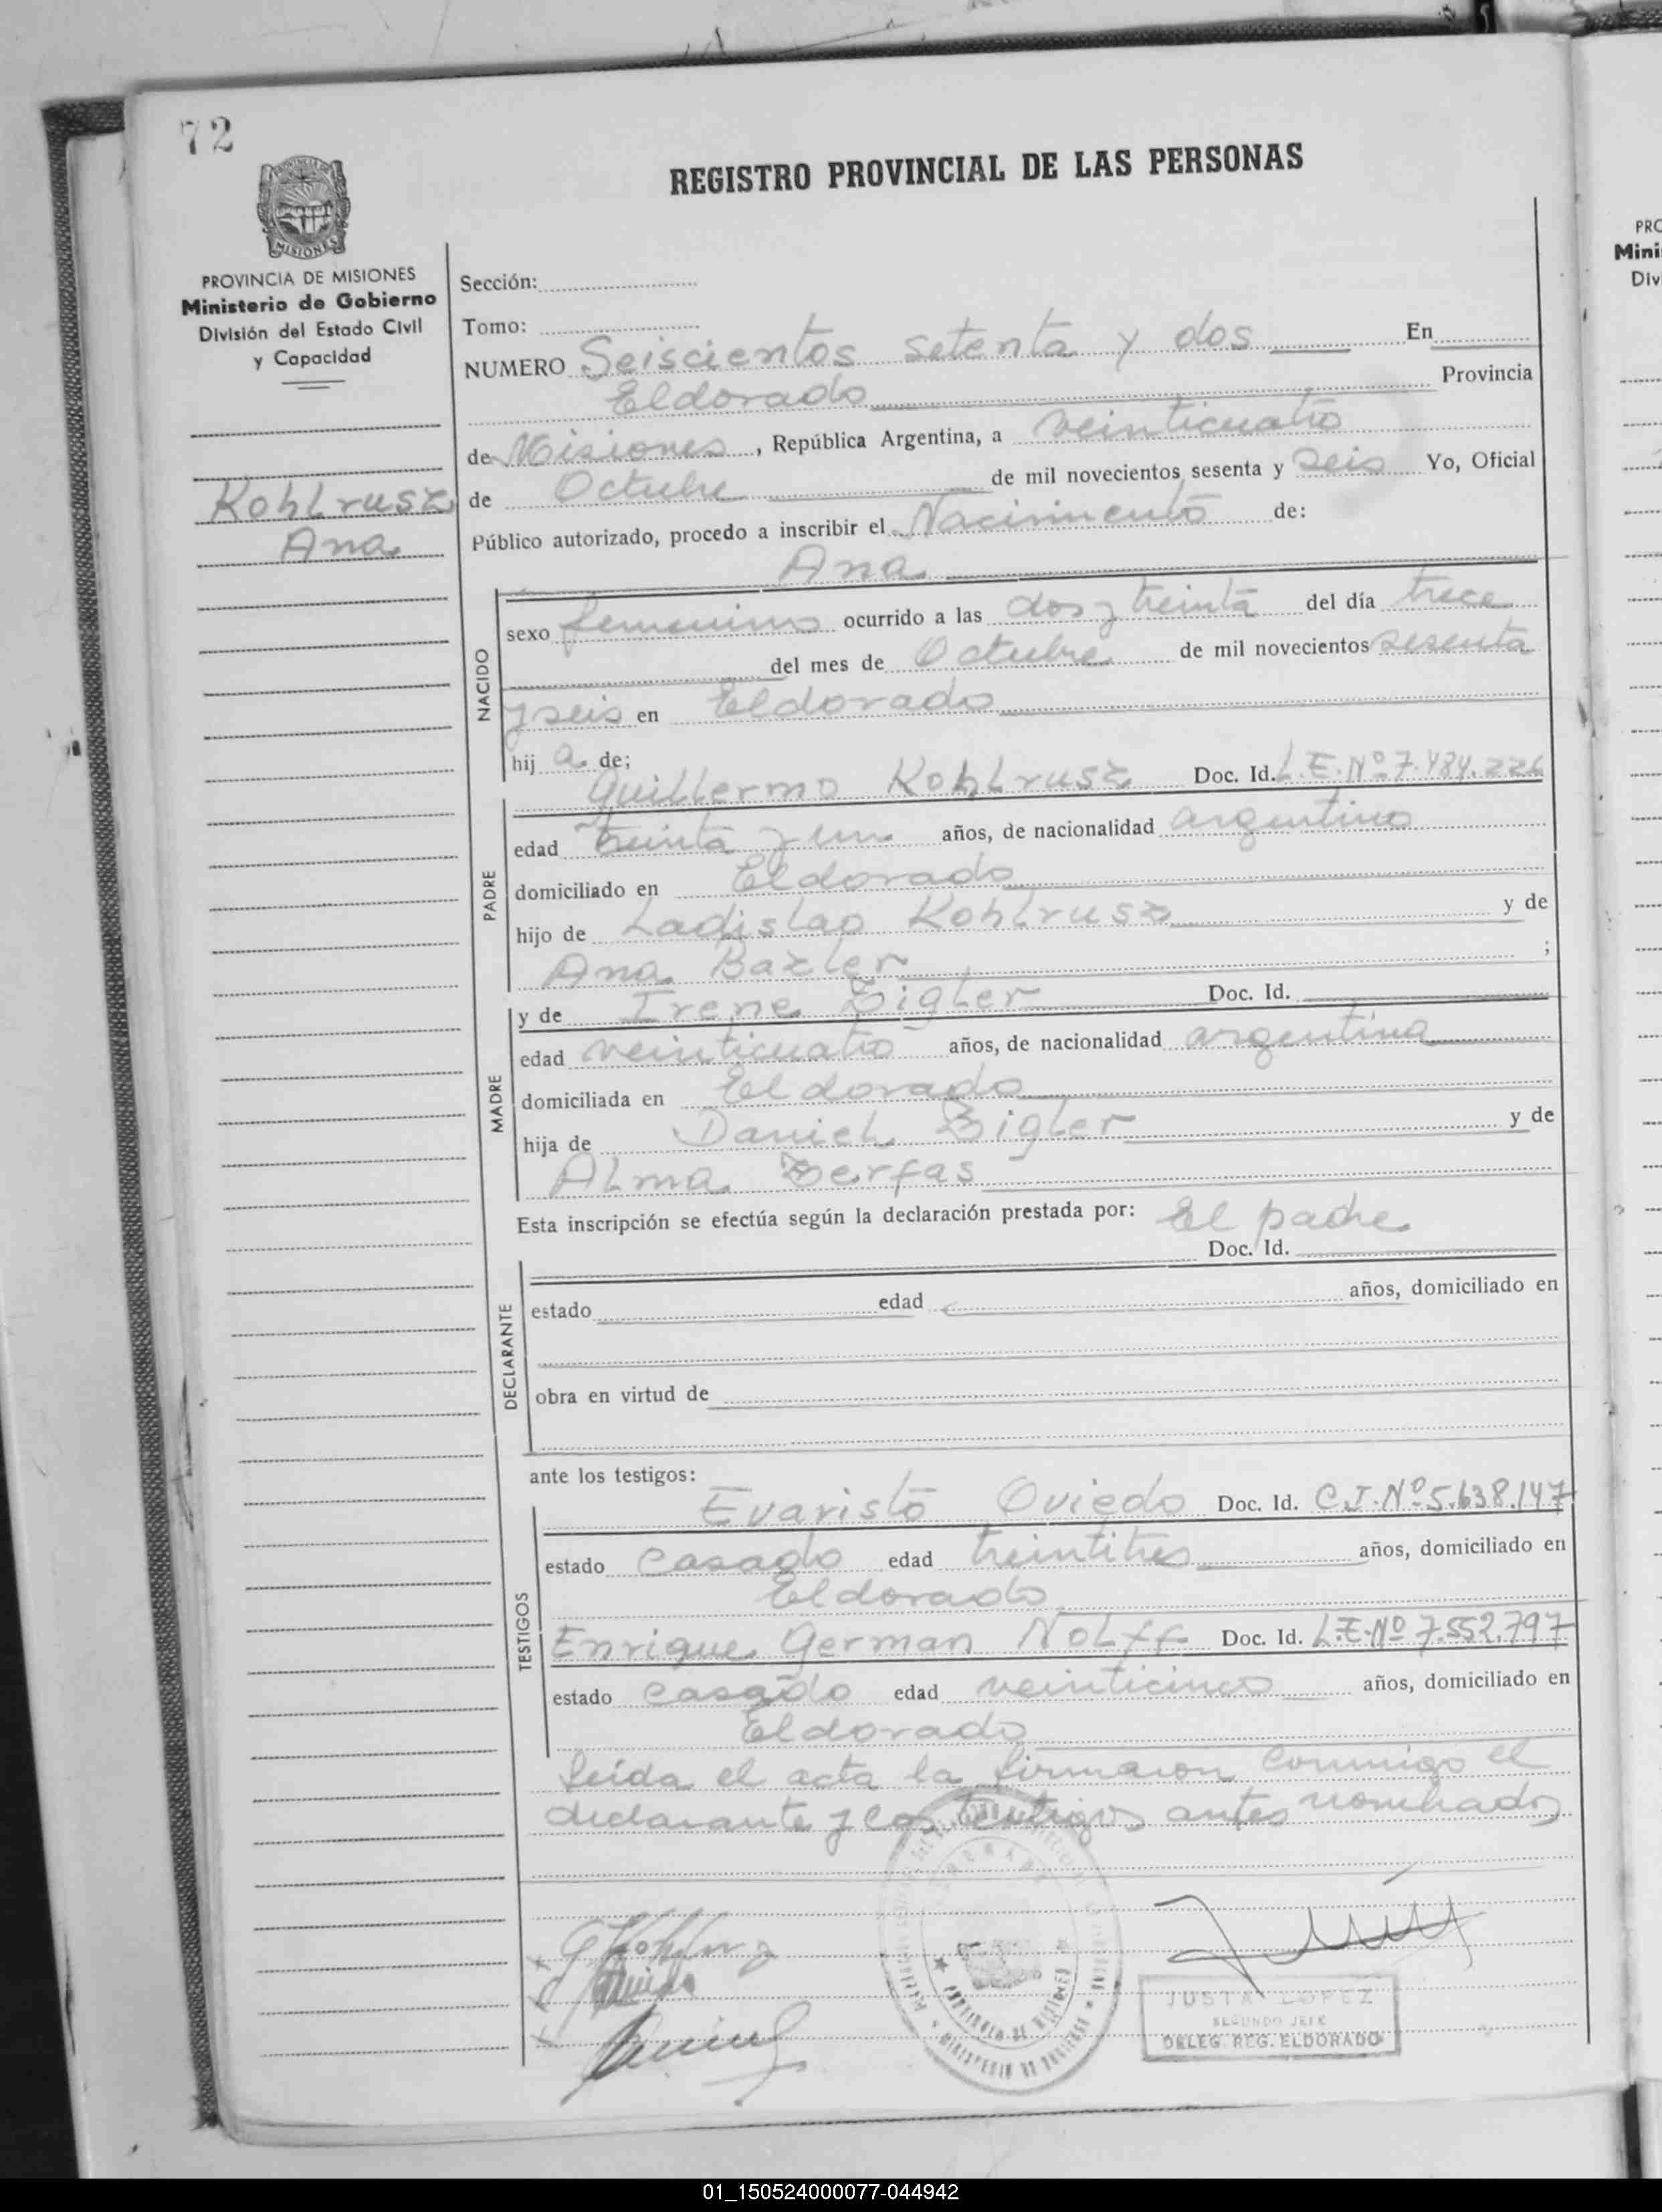 72
REGISTRO PROVINCIAL DE LAS PERSONAS
MISIONES
PROVINCIA DE MISIONES
Ministerio de Gobierno
División del Estado Civil
y Capacidad
Kohlrusz
Ana
Sección:
Tomo:
NUMERO Seiscientos setenta y dos En
Eldorado Provincia
de Misiones, República Argentina, a veinticuatro
de Octubre de mil novecientos sesenta y seis Yo, Oficial
Público autorizado, procedo a inscribir el Nacimiento de:
Ana
NACIDO
sexo femenino ocurrido a las dos y treinta del día trece
del mes de Octubre de mil novecientos sesenta
y seis en Eldorado
hij a de;
Guillermo Kohlrusz Doc. Id. L.E.Nº 7.484.226
PADRE
edad treinta y un años, de nacionalidad argentino
domiciliado en Eldorado
hijo de Ladislao Kohlrusz y de
Ana Bazler ;
MADRE
y de Irene Zigler Doc. Id.
edad veinticuatro años, de nacionalidad argentina
domiciliada en Eldorado
hija de Daniel Zigler y de
Alma Zerfas
Esta inscripción se efectúa según la declaración prestada por: El padre
Doc. Id.
DECLARANTE
estado edad años, domiciliado en
obra en virtud de
ante los testigos:
Evaristo Oviedo Doc. Id. C.I.Nº 5.638.147
TESTIGOS
estado casado edad treintitres años, domiciliado en
Eldorado
Enrique German Nolff Doc. Id. L.E.Nº 7.552.797
estado casado edad veinticinco años, domiciliado en
Eldorado
Leida el acta la firmaron conmigo el
declarante y los testigos antes nombrados
PROVINCIA DE MISIONES
MINISTERIO DE GOBIERNO
JUSTA LOPEZ
SEGUNDO JEFE
DELEG. REG. ELDORADO
PRO
Mini
Div
01_150524000077-044942